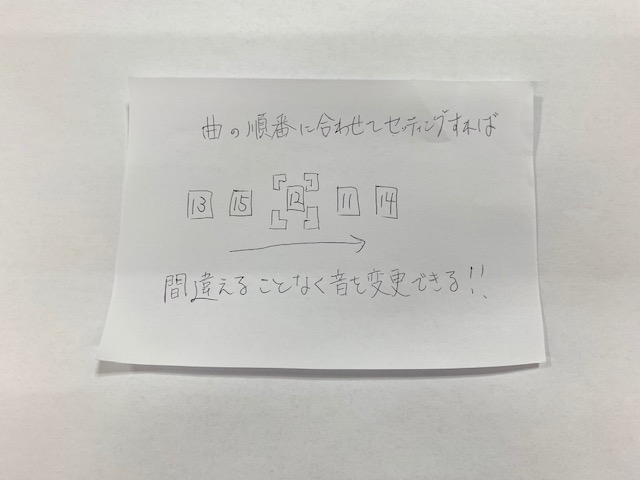 曲の順番に合わせてセッティングすれば
13 15 12 11 14
間違えることなく音を変更できる!!